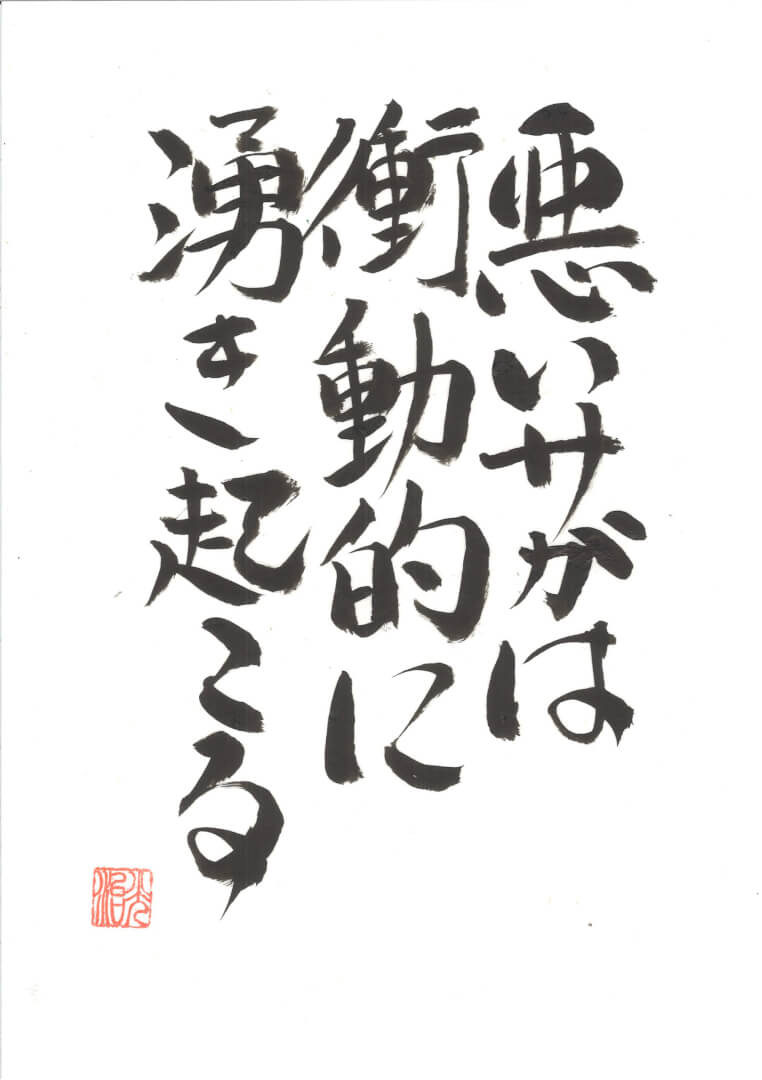 悪いサガは
衝動的に
湧き起こる